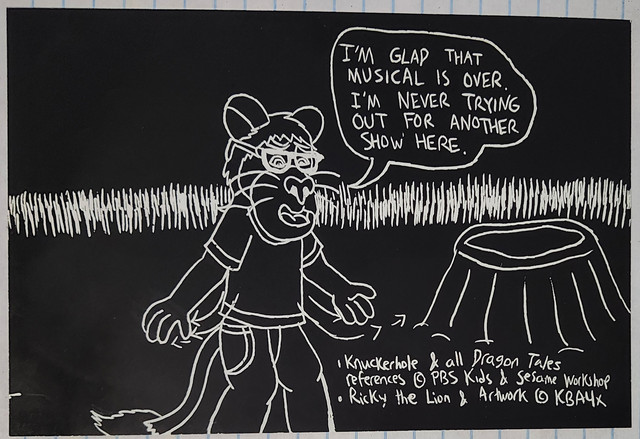 I'M GLAD THAT
MUSICAL IS OVER.
I'M NEVER TRYING
OUT FOR ANOTHER
SHOW HERE.
• Knuckerhole & all Dragon Tales
references © PBS Kids & Sesame Workshop
• Ricky the Lion & Artwork © KBAYx